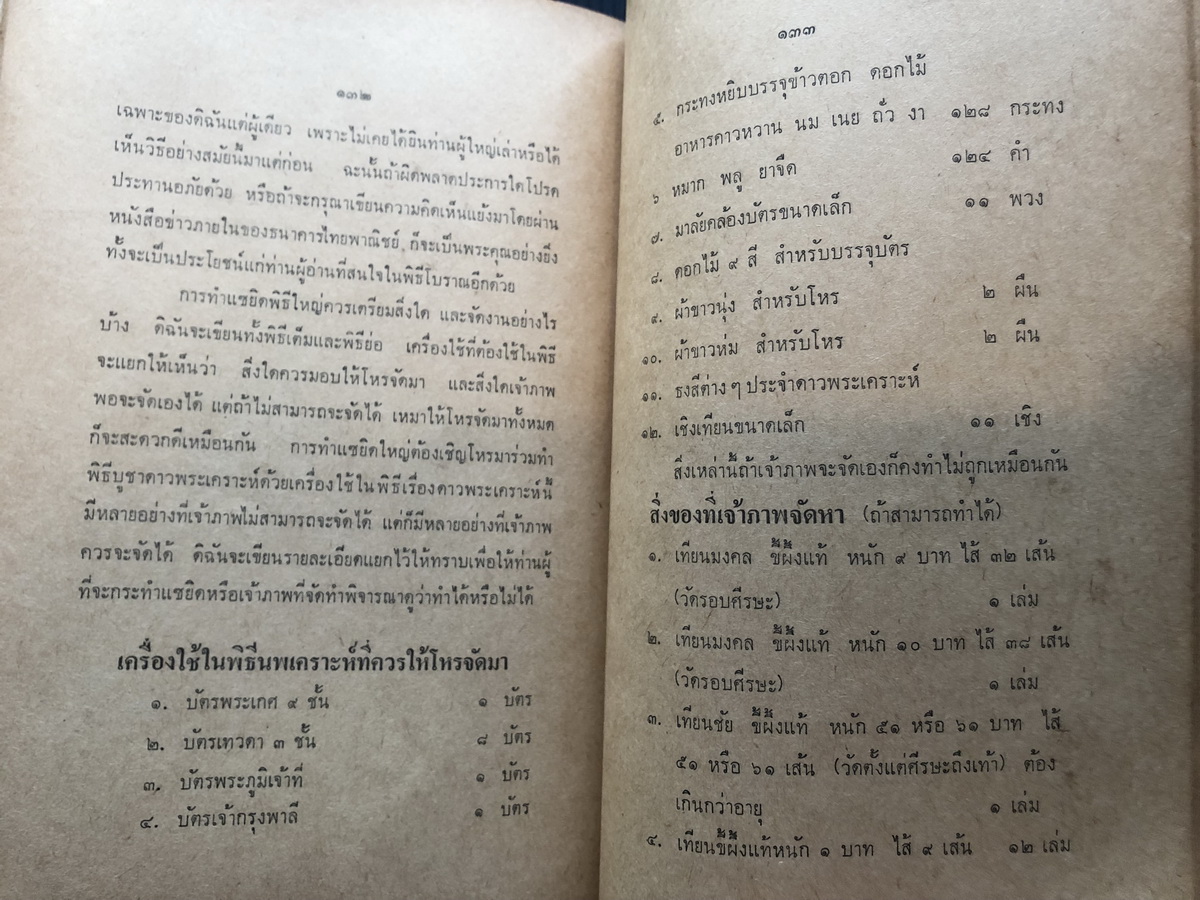 ๑๓๒
เฉพาะของดิฉันแต่ผู้เดียว เพราะไม่เคยได้ยินท่านผู้ใหญ่เล่าหรือได้
เห็นวิธีอย่างสมัยนี้มาแต่ก่อน ฉะนั้นถ้าผิดพลาดประการใดโปรด
ประทานอภัยด้วย หรือถ้าจะกรุณาเขียนความคิดเห็นแย้งมาโดยผ่าน
หนังสือข่าวภายในของธนาคารไทยพาณิชย์ ก็จะเป็นพระคุณอย่างยิ่ง
ทั้งจะเป็นประโยชน์แก่ท่านผู้อ่านที่สนใจในพิธีโบราณอีกด้วย
การทำแซยิดพิธีใหญ่ควรเตรียมสิ่งใด และจัดงานอย่างไร
บ้าง ดิฉันจะเขียนทั้งพิธีเต็มและพิธีย่อ เครื่องใช้ที่ต้องใช้ในพิธี
จะแยกให้เห็นว่า สิ่งใดควรมอบให้โหรจัดมา และสิ่งใดเจ้าภาพ
พอจะจัดเองได้ แต่ถ้าไม่สามารถจะจัดได้ เหมาให้โหรจัดมาทั้งหมด
ก็จะสะดวกดีเหมือนกัน การทำแซยิดใหญ่ต้องเชิญโหรมาร่วมทำ
พิธีบูชาดาวพระเคราะห์ด้วยเครื่องใช้ในพิธีเรื่องดาวพระเคราะห์นี้
มีหลายอย่างที่เจ้าภาพไม่สามารถจะจัดได้ แต่ก็มีหลายอย่างที่เจ้าภาพ
ควรจะจัดได้ ดิฉันจะเขียนรายละเอียดแยกไว้ให้ทราบเพื่อให้ท่านผู้
ที่จะกระทำแซยิดหรือเจ้าภาพที่จัดทำพิจารณาดูว่าทำได้หรือไม่ได้
เครื่องใช้ในพิธีนพเคราะห์ที่ควรให้โหรจัดมา
๑. บัตรพระเกศ ๙ ชั้น ๑ บัตร
๒. บัตรเทวดา ๓ ชั้น ๘ บัตร
๓. บัตรพระภูมิเจ้าที่ ๑ บัตร
๔. บัตรเจ้ากรุงพาลี ๑ บัตร
๑๓๓
๕. กระทงหยิบบรรจุข้าวตอก ดอกไม้
อาหารคาวหวาน นม เนย ถั่ว งา ๑๒๘ กระทง
๖ หมาก พลู ยาจืด ๑๒๔ คำ
๗. มาลัยคล้องบัตรขนาดเล็ก ๑๑ พวง
๘. ดอกไม้ ๙ สี สำหรับบรรจุบัตร
๙. ผ้าขาวนุ่ง สำหรับโหร ๒ ผืน
๑๐. ผ้าขาวห่ม สำหรับโหร ๒ ผืน
๑๑. ธงสีต่าง ๆ ประจำดาวพระเคราะห์
๑๒. เชิงเทียนขนาดเล็ก ๑๑ เชิง
สิ่งเหล่านี้ถ้าเจ้าภาพจะจัดเองก็คงทำไม่ถูกเหมือนกัน
สิ่งของที่เจ้าภาพจัดหา (ถ้าสามารถทำได้)
๑. เทียนมงคล ขี้ผึ้งแท้ หนัก ๙ บาท ไส้ ๓๒ เส้น
(วัดรอบศีรษะ) ๑ เล่ม
๒. เทียนมงคล ขี้ผึ้งแท้ หนัก ๑๐ บาท ไส้ ๓๘ เส้น
(วัดรอบศีรษะ) ๑ เล่ม
๓. เทียนชัย ขี้ผึ้งแท้ หนัก ๕๑ หรือ ๖๑ บาท ไส้
๕๑ หรือ ๖๑ เส้น (วัดตั้งแต่ศีรษะถึงเท้า) ต้อง
เกินกว่าอายุ ๑ เล่ม
๔. เทียนขี้ผึ้งแท้หนัก ๑ บาท ไส้ ๙ เส้น ๑๒ เล่ม